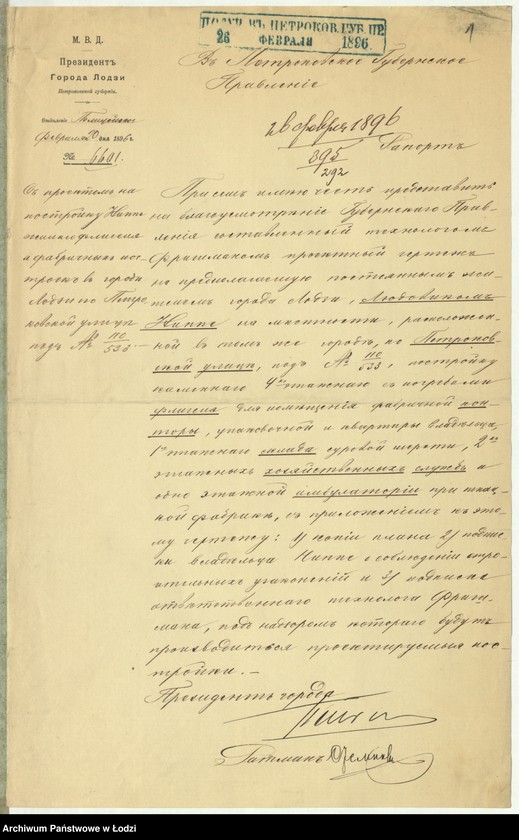 ПОЛУЧ. ВЪ ПЕТРОКОВ. ГУБ. ПР.
26 ФЕВРАЛЯ 1896
1
М. В. Д.
Президентъ
Города Лодзи
Петроковской губерніи.
Отдѣленіе Полицейское
Февраля 10 дня 1896 г.
№ 6601.
Въ Петроковское Губернское
Правленіе
26 февраля 1896
895
292
Рапортъ
Съ проектомъ на
постройку Киппе
жилаго флигеля
и фабричныхъ пос-
троекъ въ городѣ
Лодзи по Петро-
ковской улицѣ
подъ № 110/533 —
При семъ имѣю честь представить
на благоусмотрѣніе Губернскаго Прав-
ленія составленный технологомъ
Фришманомъ проектный чертежъ
на предполагаемую постояннымъ жи-
телемъ города Лодзи, Людвикомъ
Киппе на мѣстности, расположен-
ной въ томъ же городѣ, по Петроков-
ской улицѣ, подъ № 110/533, постройку
каменнаго 4хъ этажнаго съ погребами
флигеля для помѣщенія фабричной кон-
торы, упаковочной и квартиры владѣльца,
1 этажнаго склада суровой шерсти, 2хъ
этажныхъ хозяйственныхъ службъ и
одно этажной амбулаторіи при ткац-
кой фабрикѣ, съ приложеніемъ къ это-
му чертежу: 1/ копіи плана 2/ подпис-
ки владѣльца Киппе о соблюденіи стро-
ительныхъ узаконеній и 3/ подписки
отвѣтственнаго технолога Фриш-
мана, подъ надзоромъ котораго будутъ
производиться проектируемыя пос-
тройки. —
Президентъ города
Archiwum Państwowe w Łodzi